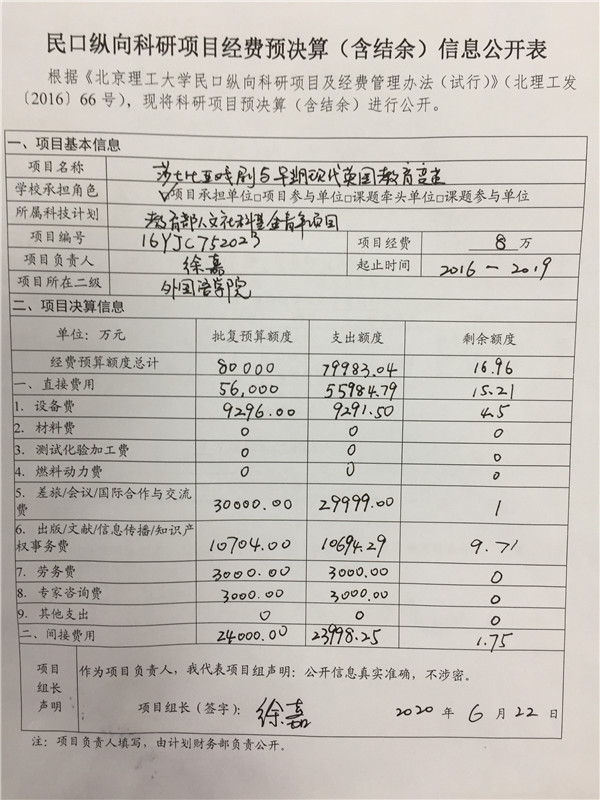 民口纵向科研项目经费预决算（含结余）信息公开表
根据《北京理工大学民口纵向科研项目及经费管理办法（试行）》（北理工发
〔2016〕66 号），现将科研项目预决算（含结余）进行公开。
一、项目基本信息
项目名称 莎士比亚戏剧与早期现代英国教育
学校承担角色 ☑项目承担单位□项目参与单位□课题牵头单位□课题参与单位
所属科技计划 教育部人文社科基金青年项目
项目编号 16YJC752023 项目经费 8 万
项目负责人 徐嘉 起止时间 2016 — 2019
项目所在二级 外国语学院
二、项目决算信息
单位：万元 批复预算额度 支出额度 剩余额度
经费预算额度总计 80000 79983.04 16.96
一、直接费用 56,000 55984.79 15.21
1. 设备费 9296.00 9291.50 4.5
2. 材料费 0 0 0
3. 测试化验加工费 0 0 0
4. 燃料动力费 0 0 0
5. 差旅/会议/国际合作与交流
费 30000.00 29999.00 1
6. 出版/文献/信息传播/知识产
权事务费 10704.00 10694.29 9.71
7. 劳务费 3000.00 3000.00 0
8. 专家咨询费 3000.00 3000.00 0
9. 其他支出 0 0 0
二、间接费用 24000.00 23998.25 1.75
项目
组长
声明
作为项目负责人，我代表项目组声明：公开信息真实准确，不涉密。
项目组长（签字）： 徐嘉 2020 年 6 月 22 日
注：项目负责人填写，由计划财务部负责公开。